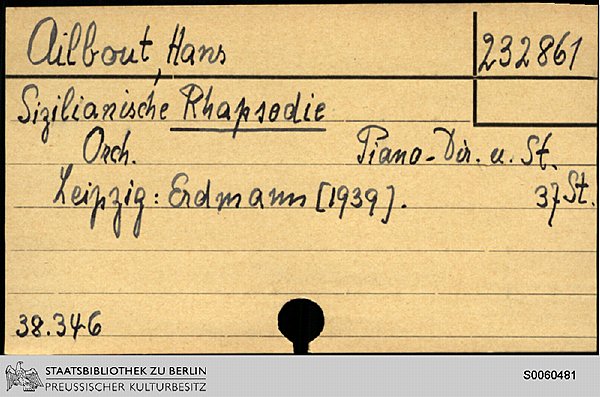 Ailbout, Hans 232861
Sizilianische Rhapsodie
Orch. Piano-Dir. u. St.
Leipzig: Erdmann [1939]. 37 St.
38.346
STAATSBIBLIOTHEK ZU BERLIN
PREUSSISCHER KULTURBESITZ
S0060481